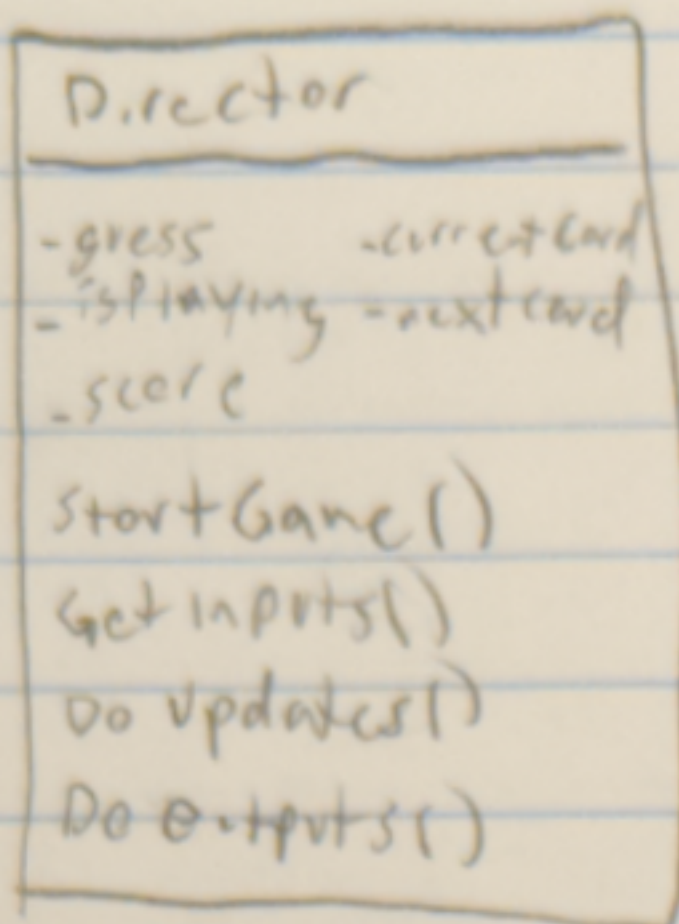 Director
-guess -currentCard
-isPlaying -nextCard
-score
StartGame()
Get inputs()
Do Updates()
Do outputs()